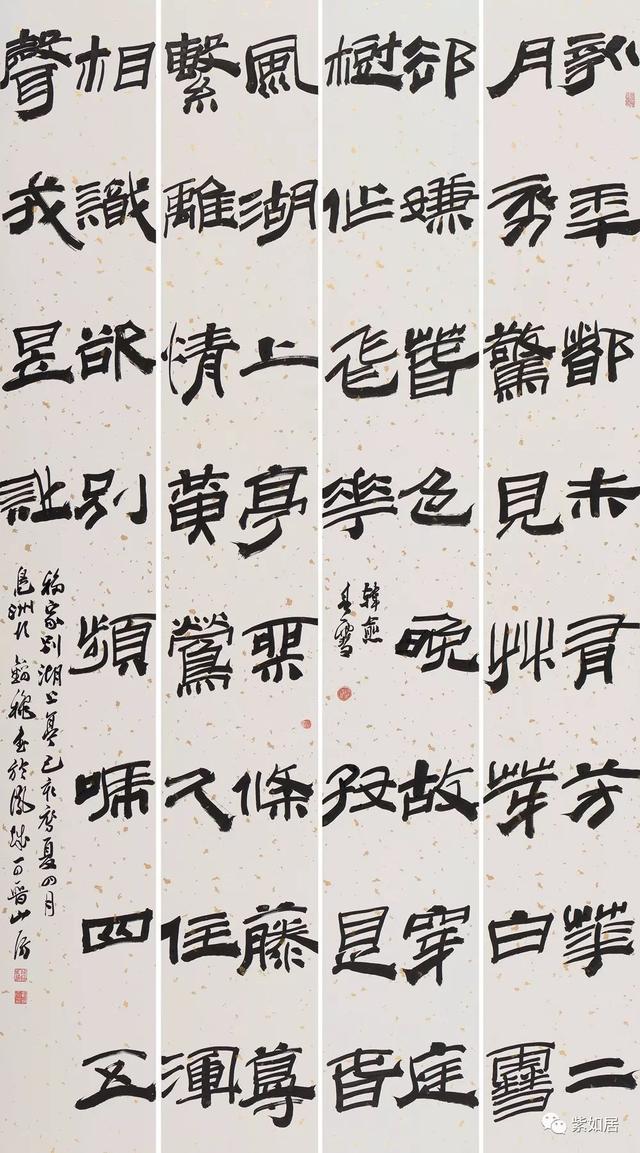 新年都未有芳華二
月初驚見艸芽白雪
卻嫌萅色晚故穿庭
樹作飛華
韓愈
春雪
好是旾
風湖上亭柳條藤蔓
繫離情黄鶯久住渾
相識欲別頻啼四五
聲戎昱詩
移家別湖上亭己亥夏四月
書於鳳城百晉山房
紫如居